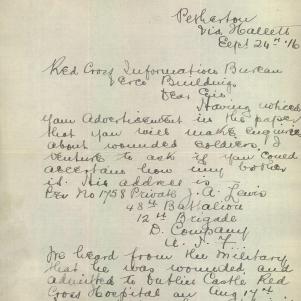 Petherton
via Hallett
Sept 24th 16
Red Cross Information Bureau
Verco Building.
Dear Sir.
Having noticed
your Advertisement in the paper
that you will make enquiries
about wounded soldiers, I
venture to ask if you could
ascertain how my brother
is. His address is
No 1758 Private J. A. Lewis
48th Battalion
12th Brigade
D. Company
A. I. F.
We heard from the Military
that he was wounded and
admitted to Dublin Castle Red
Cross Hospital on Aug 17th